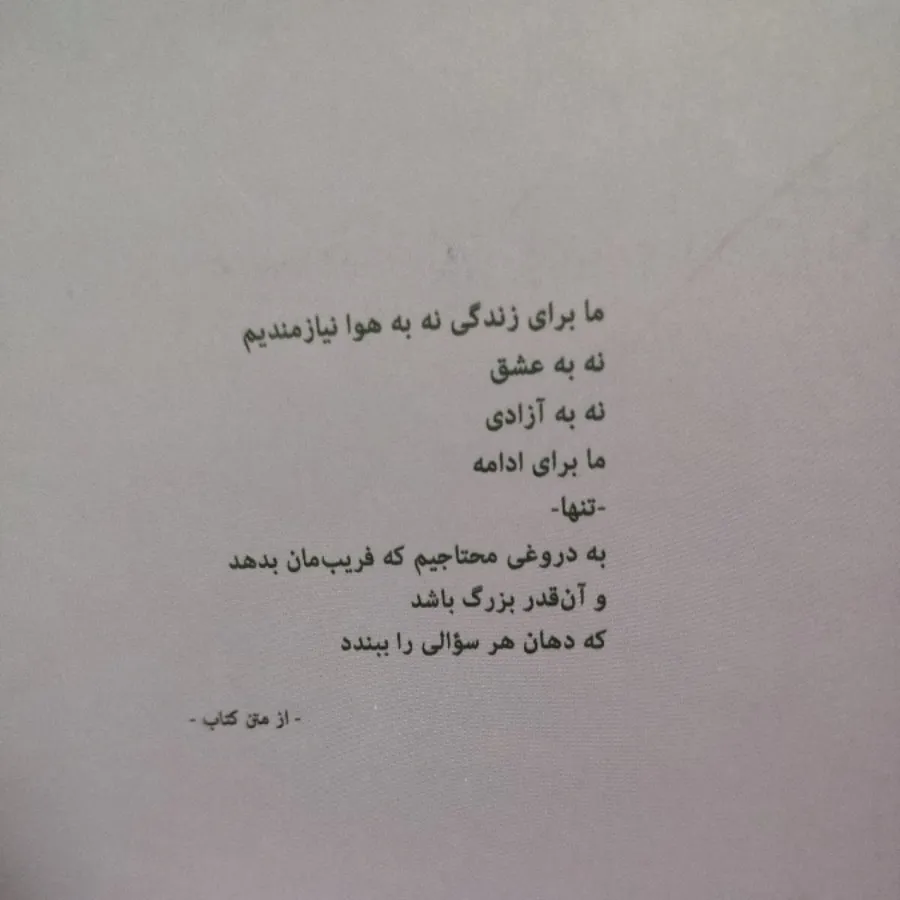 ما برای زندگی نه به هوا نیازمندیم
نه به عشق
نه به آزادی
ما برای ادامه
-تنها-
به دروغی محتاجیم که فریب‌مان بدهد
و آن‌قدر بزرگ باشد
که دهان هر سؤالی را ببندد
- از متن کتاب -